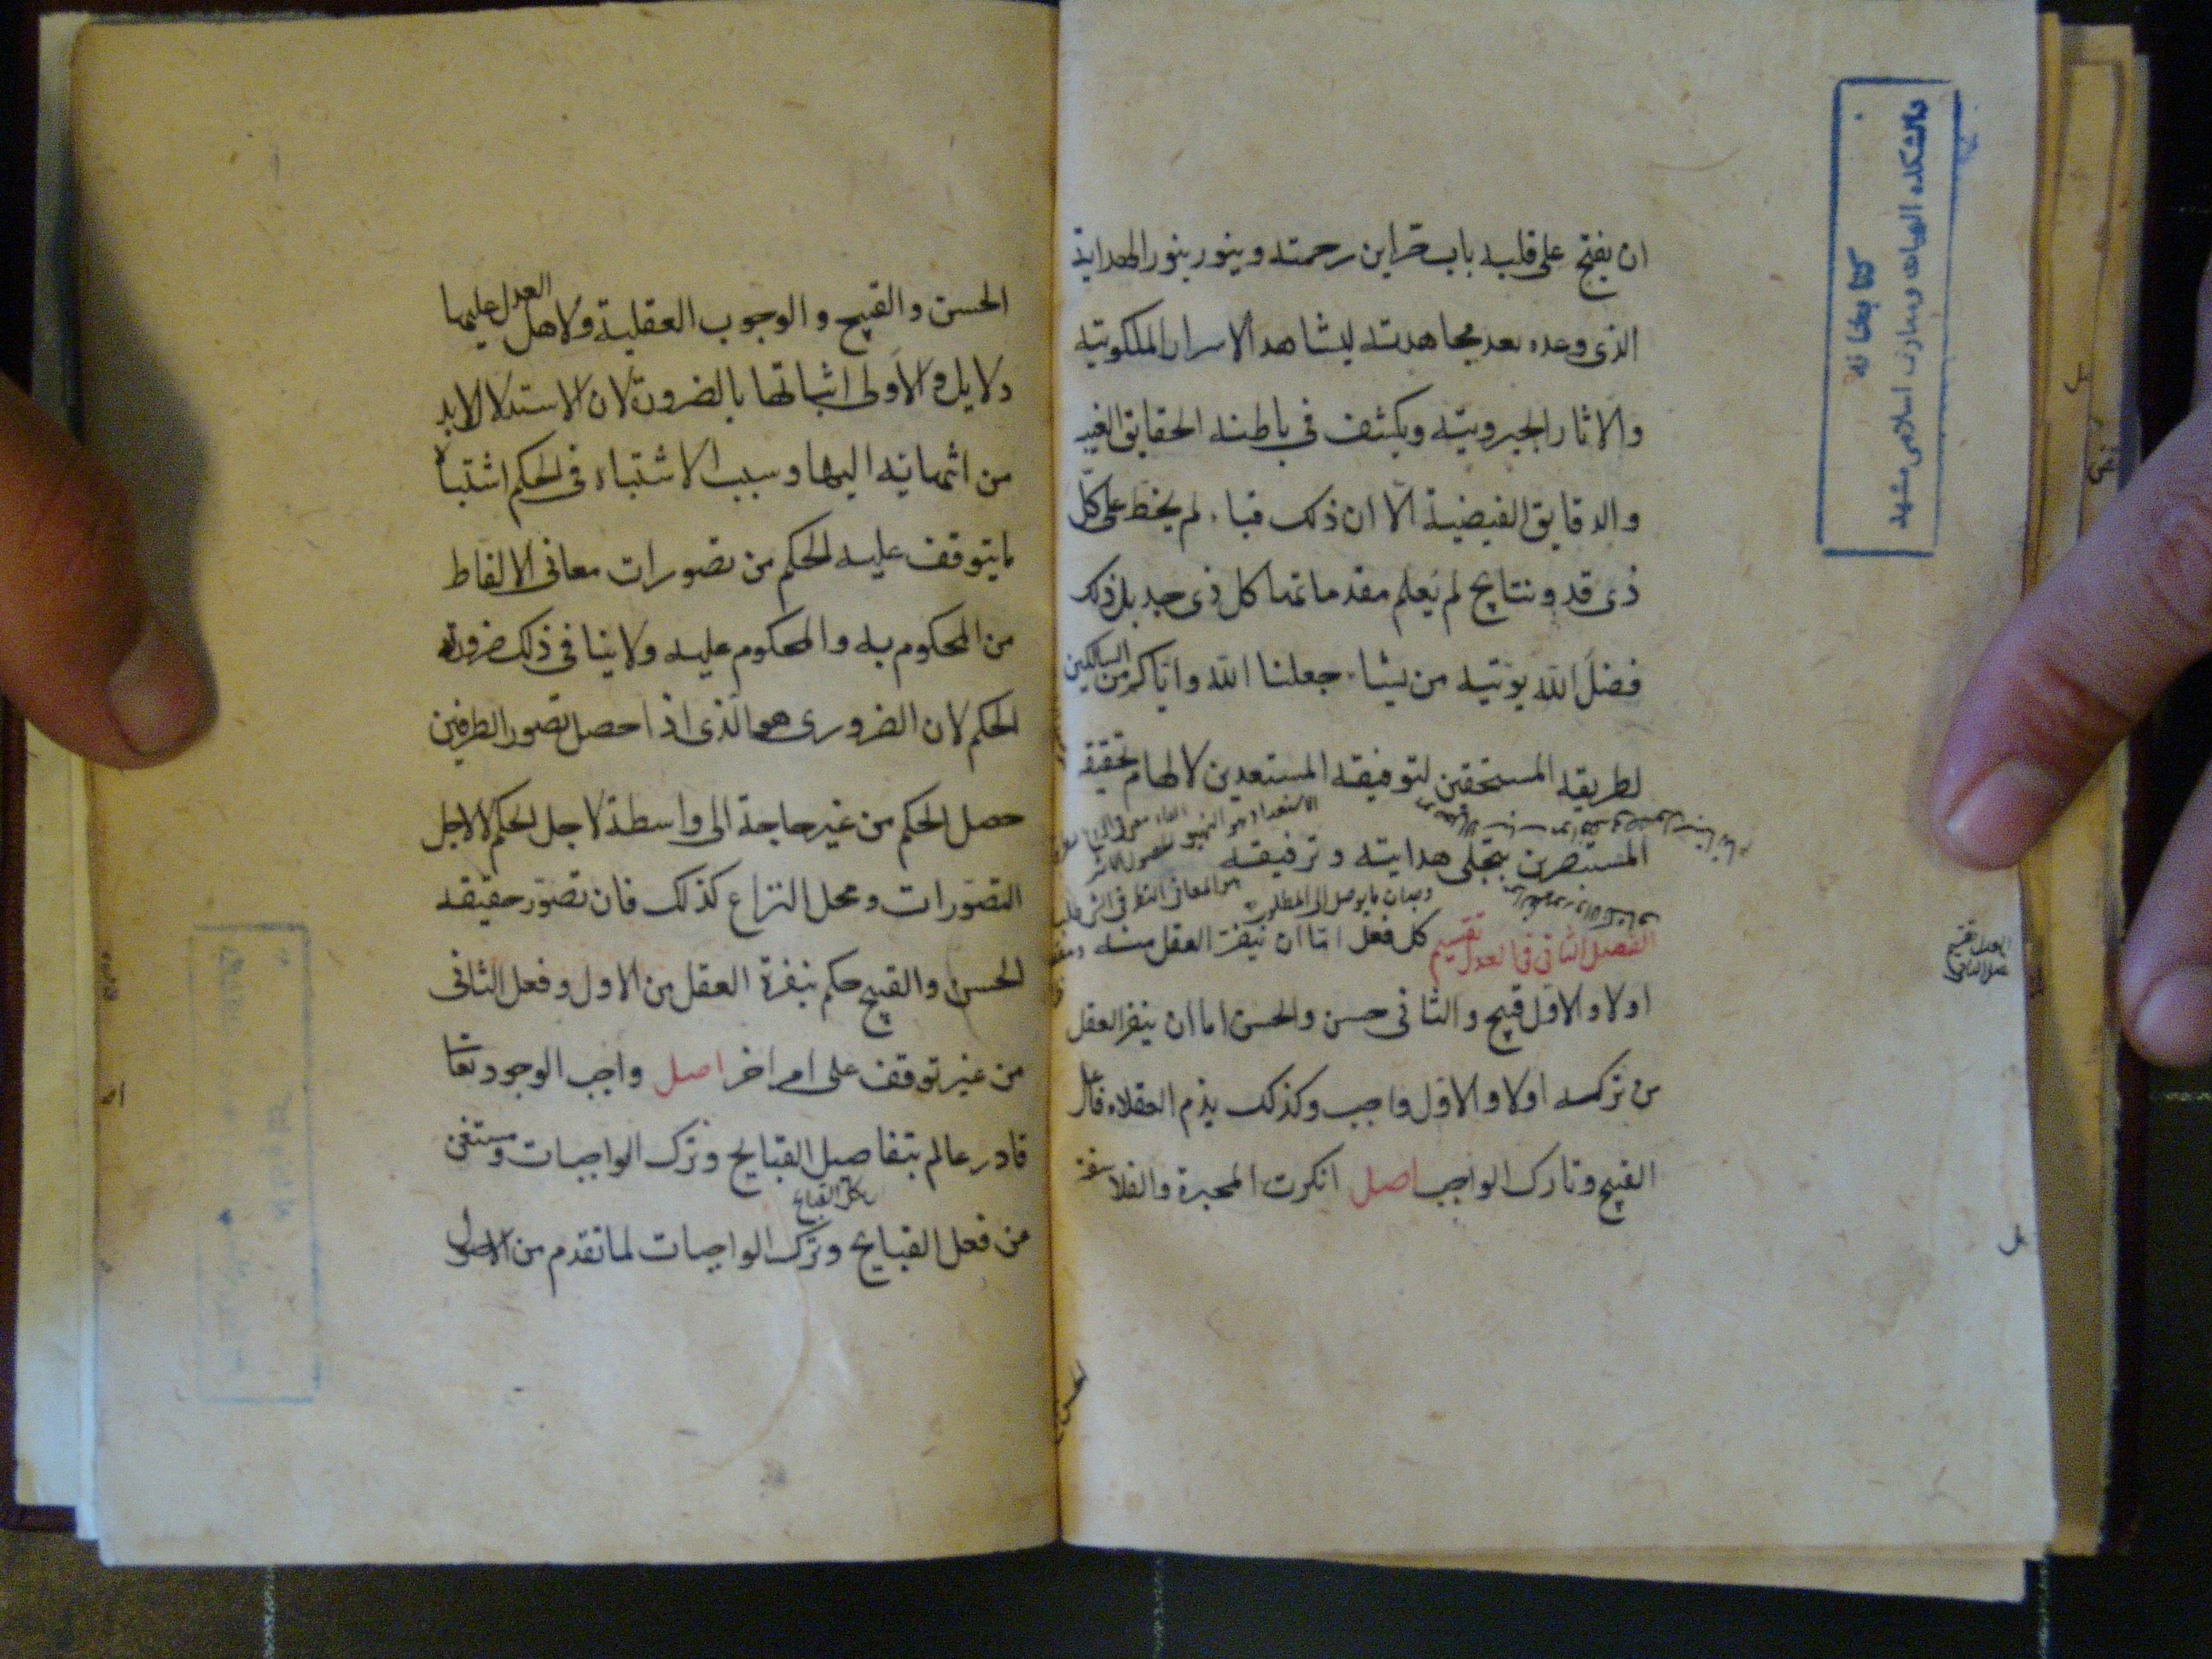 ان يفتح على قلبه باب خزاين رحمته وينور بنور الهداية
الذى وعده بعد مجاهدته ليشاهد الاسرار الملكوتية
والاثار الجبروتية ويكشف فى باطنه الحقايق الغيبية
والدقايق الفيضية الّا ان ذلك قباء لم يخط على كلّ
ذى قد ونتايج لم يُعلم مقدماتها كل ذى جد بل ذلك
فضلَ الله يوتيه من يشاء جعلنا الله واياكم من السالكين
لطريقه المستحقين لتوفيقه المستعدين لالهام تحقيقه
المستبصرين بتجلى هدايته وترفيقه
الفصل الثانى فى العدل تقسيم كل فعل امّا ان ينفر العقل منه
اولا والاول قبيح والثانى حسن والحسن اما ان ينفر العقل
من تركه اولا والاول واجب وكذلك يذم العقلاء فاعل
القبيح وتارك الواجب اصل انكرت المجبرة والفلاسفة
الحسن والقبيح والوجوب العقلية ولاهل العدل عليها
دلايل والاولى اثباتها بالضرورة لان الاستدلال لابد
من انتهائه اليها وسبب الاشتباه فى الحكم اشتباه
ما يتوقف عليه الحكم من تصورات معانى الالفاظ
من المحكوم به والمحكوم عليه ولا ينافى ذلك ضرورة
الحكم لان الضرورى هو الّذى اذا حصل تصور الطرفين
حصل الحكم من غير حاجة الى واسطة لاجل الحكم لا لاجل
التصوّرات ومحل النزاع كذلك فان تصوّر حقيقة
الحسن والقبيح حكم بنفرة العقل من الاول وفعل الثانى
من غير توقف على امر اخر اصل واجب الوجود تعا
قادر عالم بتفاصيل القبايح وترك الواجبات ومستغن
من فعل القبايح وترك الواجبات لما تقدم من الاصول
دانشکده الهیات و معارف اسلامی مشهد
کتابخانه